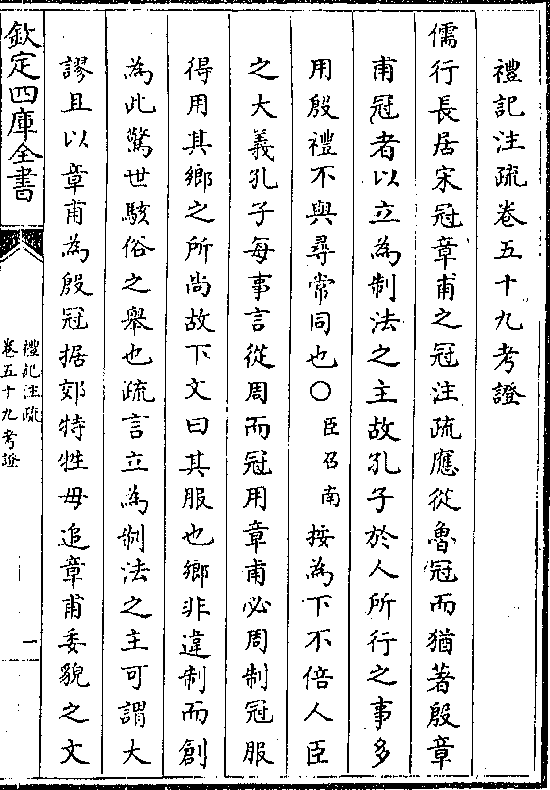 禮記注疏卷五十九考證
儒行長居宋冠章甫之冠注疏應從魯冠而猶著殷章
甫冠者以立為制法之主故孔子於人所行之事多
用殷禮不與尋常同也〇臣召南按為下不倍人臣
之大義孔子每事言從周而冠用章甫必周制冠服
得用其鄉之所尚故下文曰其服也鄉非違制而創
為此驚世駭俗之舉也疏言立為制法之主可謂大
謬且以章甫為殷冠据郊特牲毋追章甫委貌之文
欽定四庫全書
禮記注疏
卷五十九考證
一